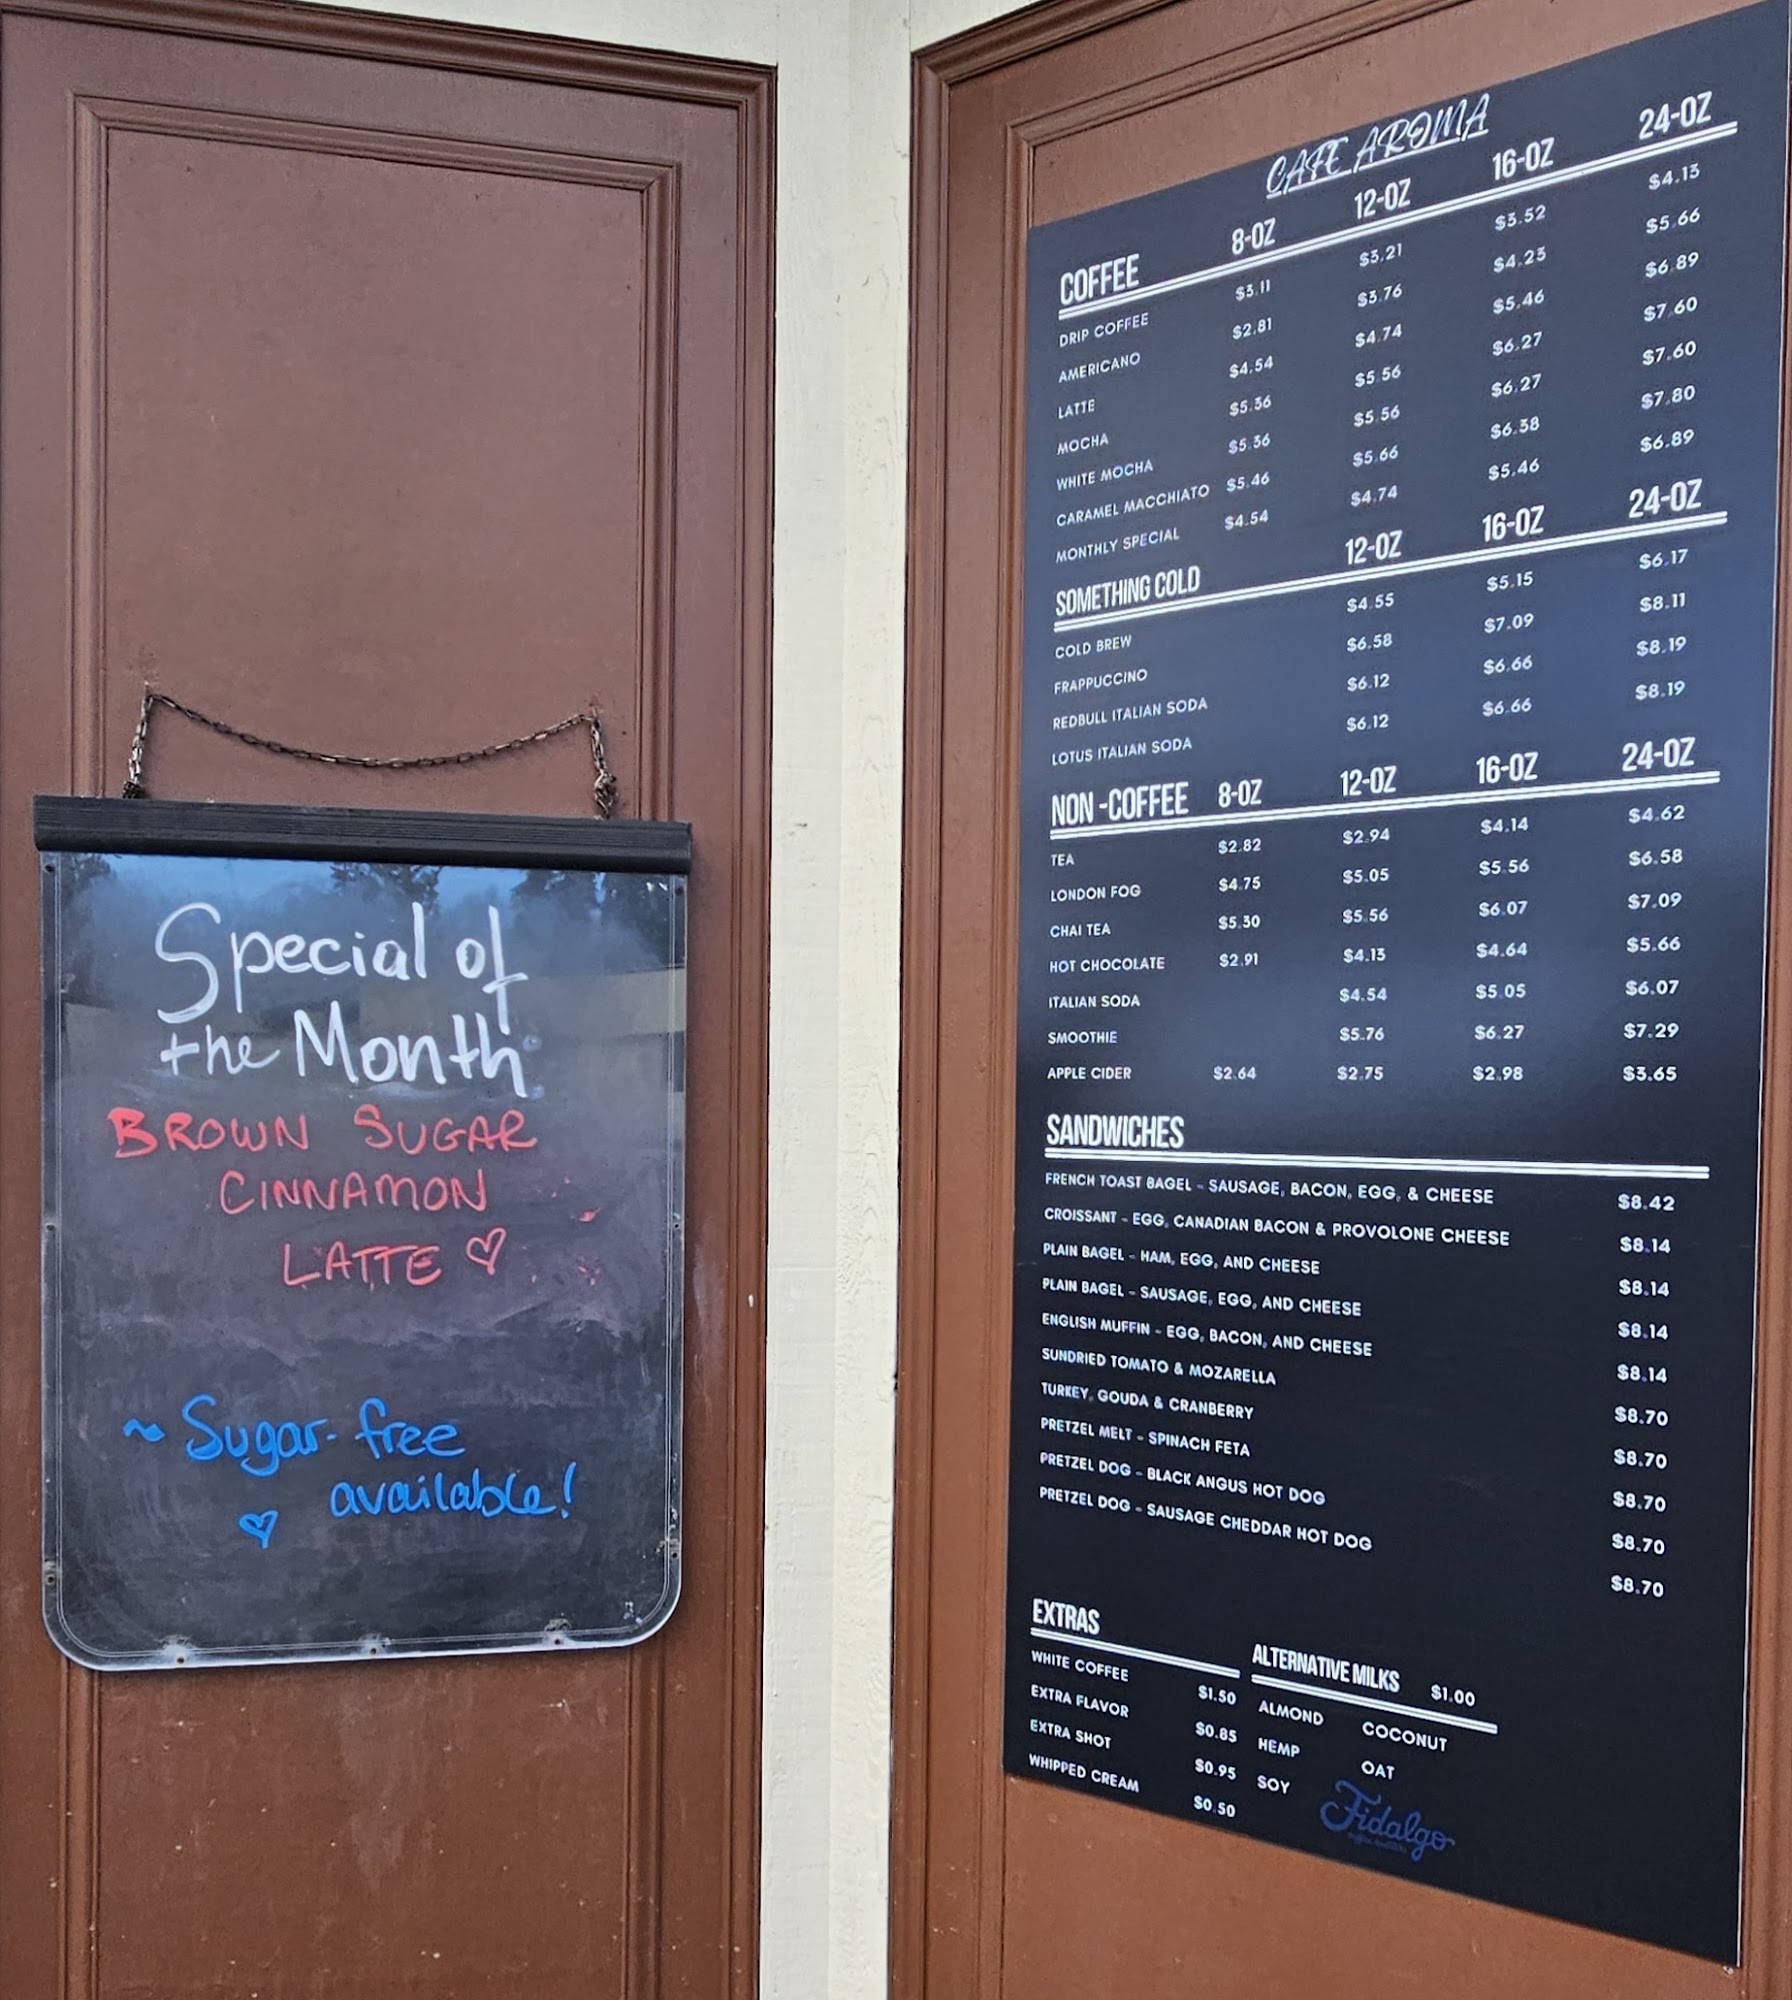 Special of
the Month
BROWN SUGAR
CINNAMON
LATTE ♡
~ Sugar-free
available!
♡
CAFE AROMA
COFFEE 8-OZ 12-OZ 16-OZ 24-OZ
DRIP COFFEE $3.11 $3.21 $3.52 $4.13
AMERICANO $2.81 $3.76 $4.23 $5.66
LATTE $4.54 $4.74 $5.46 $6.89
MOCHA $5.36 $5.56 $6.27 $7.60
WHITE MOCHA $5.36 $5.56 $6.27 $7.60
CARAMEL MACCHIATO $5.46 $5.66 $6.38 $7.80
MONTHLY SPECIAL $4.54 $4.74 $5.46 $6.89
SOMETHING COLD 12-OZ 16-OZ 24-OZ
COLD BREW $4.55 $5.15 $6.17
FRAPPUCCINO $6.58 $7.09 $8.11
REDBULL ITALIAN SODA $6.12 $6.66 $8.19
LOTUS ITALIAN SODA $6.12 $6.66 $8.19
NON -COFFEE 8-OZ 12-OZ 16-OZ 24-OZ
TEA $2.82 $2.94 $4.14 $4.62
LONDON FOG $4.75 $5.05 $5.56 $6.58
CHAI TEA $5.30 $5.56 $6.07 $7.09
HOT CHOCOLATE $2.91 $4.13 $4.64 $5.66
ITALIAN SODA $4.54 $5.05 $6.07
SMOOTHIE $5.76 $6.27 $7.29
APPLE CIDER $2.64 $2.75 $2.98 $3.65
SANDWICHES
FRENCH TOAST BAGEL - SAUSAGE, BACON, EGG, & CHEESE $8.42
CROISSANT - EGG, CANADIAN BACON & PROVOLONE CHEESE $8.14
PLAIN BAGEL - HAM, EGG, AND CHEESE $8.14
PLAIN BAGEL - SAUSAGE, EGG, AND CHEESE $8.14
ENGLISH MUFFIN - EGG, BACON, AND CHEESE $8.14
SUNDRIED TOMATO & MOZARELLA $8.70
TURKEY, GOUDA & CRANBERRY $8.70
PRETZEL MELT - SPINACH FETA $8.70
PRETZEL DOG - BLACK ANGUS HOT DOG $8.70
PRETZEL DOG - SAUSAGE CHEDDAR HOT DOG $8.70
EXTRAS
WHITE COFFEE $1.50
EXTRA FLAVOR $0.85
EXTRA SHOT $0.95
WHIPPED CREAM $0.50
ALTERNATIVE MILKS $1.00
ALMOND COCONUT
HEMP OAT
SOY
Fidalgo